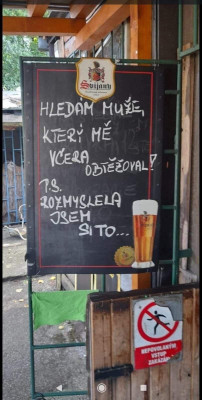 Svijany
HLEDÁM MUŽE,
KTERÝ MĚ
VČERA
OBTĚŽOVAL!
P.S.
ROZMYSLELA
JSEM
SI TO...
NEPOVOLANÝM
VSTUP
ZAKÁZÁN